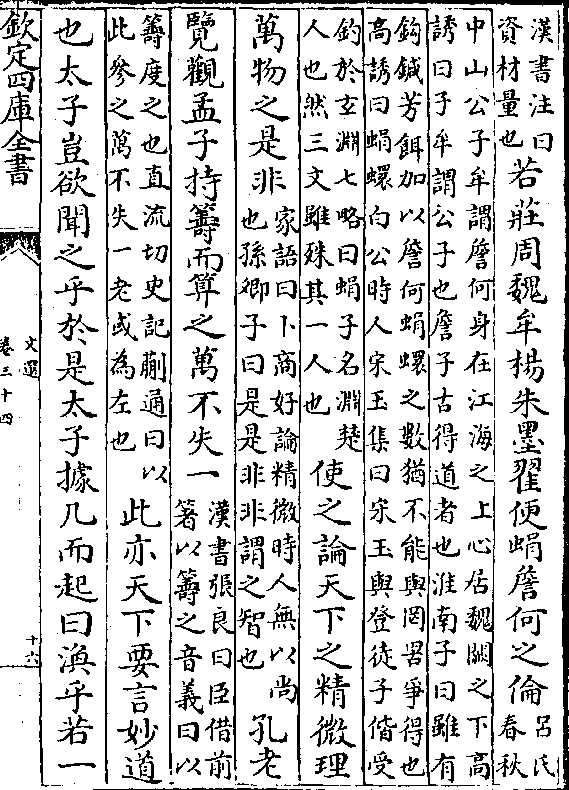 漢書注曰
資材量也
若莊周魏牟楊朱墨翟便蜎詹何之倫
呂氏
春秋
中山公子牟謂詹何身在江海之上心居魏闕之下高
誘曰子牟謂公子也詹子古得道者也淮南子曰雖有
鈎鍼芳餌加以詹何蜎蠉之數猶不能與罔罟爭得也
高誘曰蜎蠉白公時人宋玉集曰宋玉與登徒子偕受
釣於玄淵七略曰蜎子名淵楚
人也然三文雖殊其一人也
使之論天下之精微理
萬物之是非
家語曰卜商好論精微時人無以尚
也孫卿子曰是是非非謂之智也
孔老
覽觀孟子持籌而算之萬不失一
漢書張良曰臣借前
箸以籌之音義曰以
籌度之也直流切史記蒯通曰以
此參之萬不失一老或為左也
此亦天下要言妙道
也太子豈欲聞之乎於是太子據几而起曰渙乎若一
欽定四庫全書
文選
卷三十四
十六